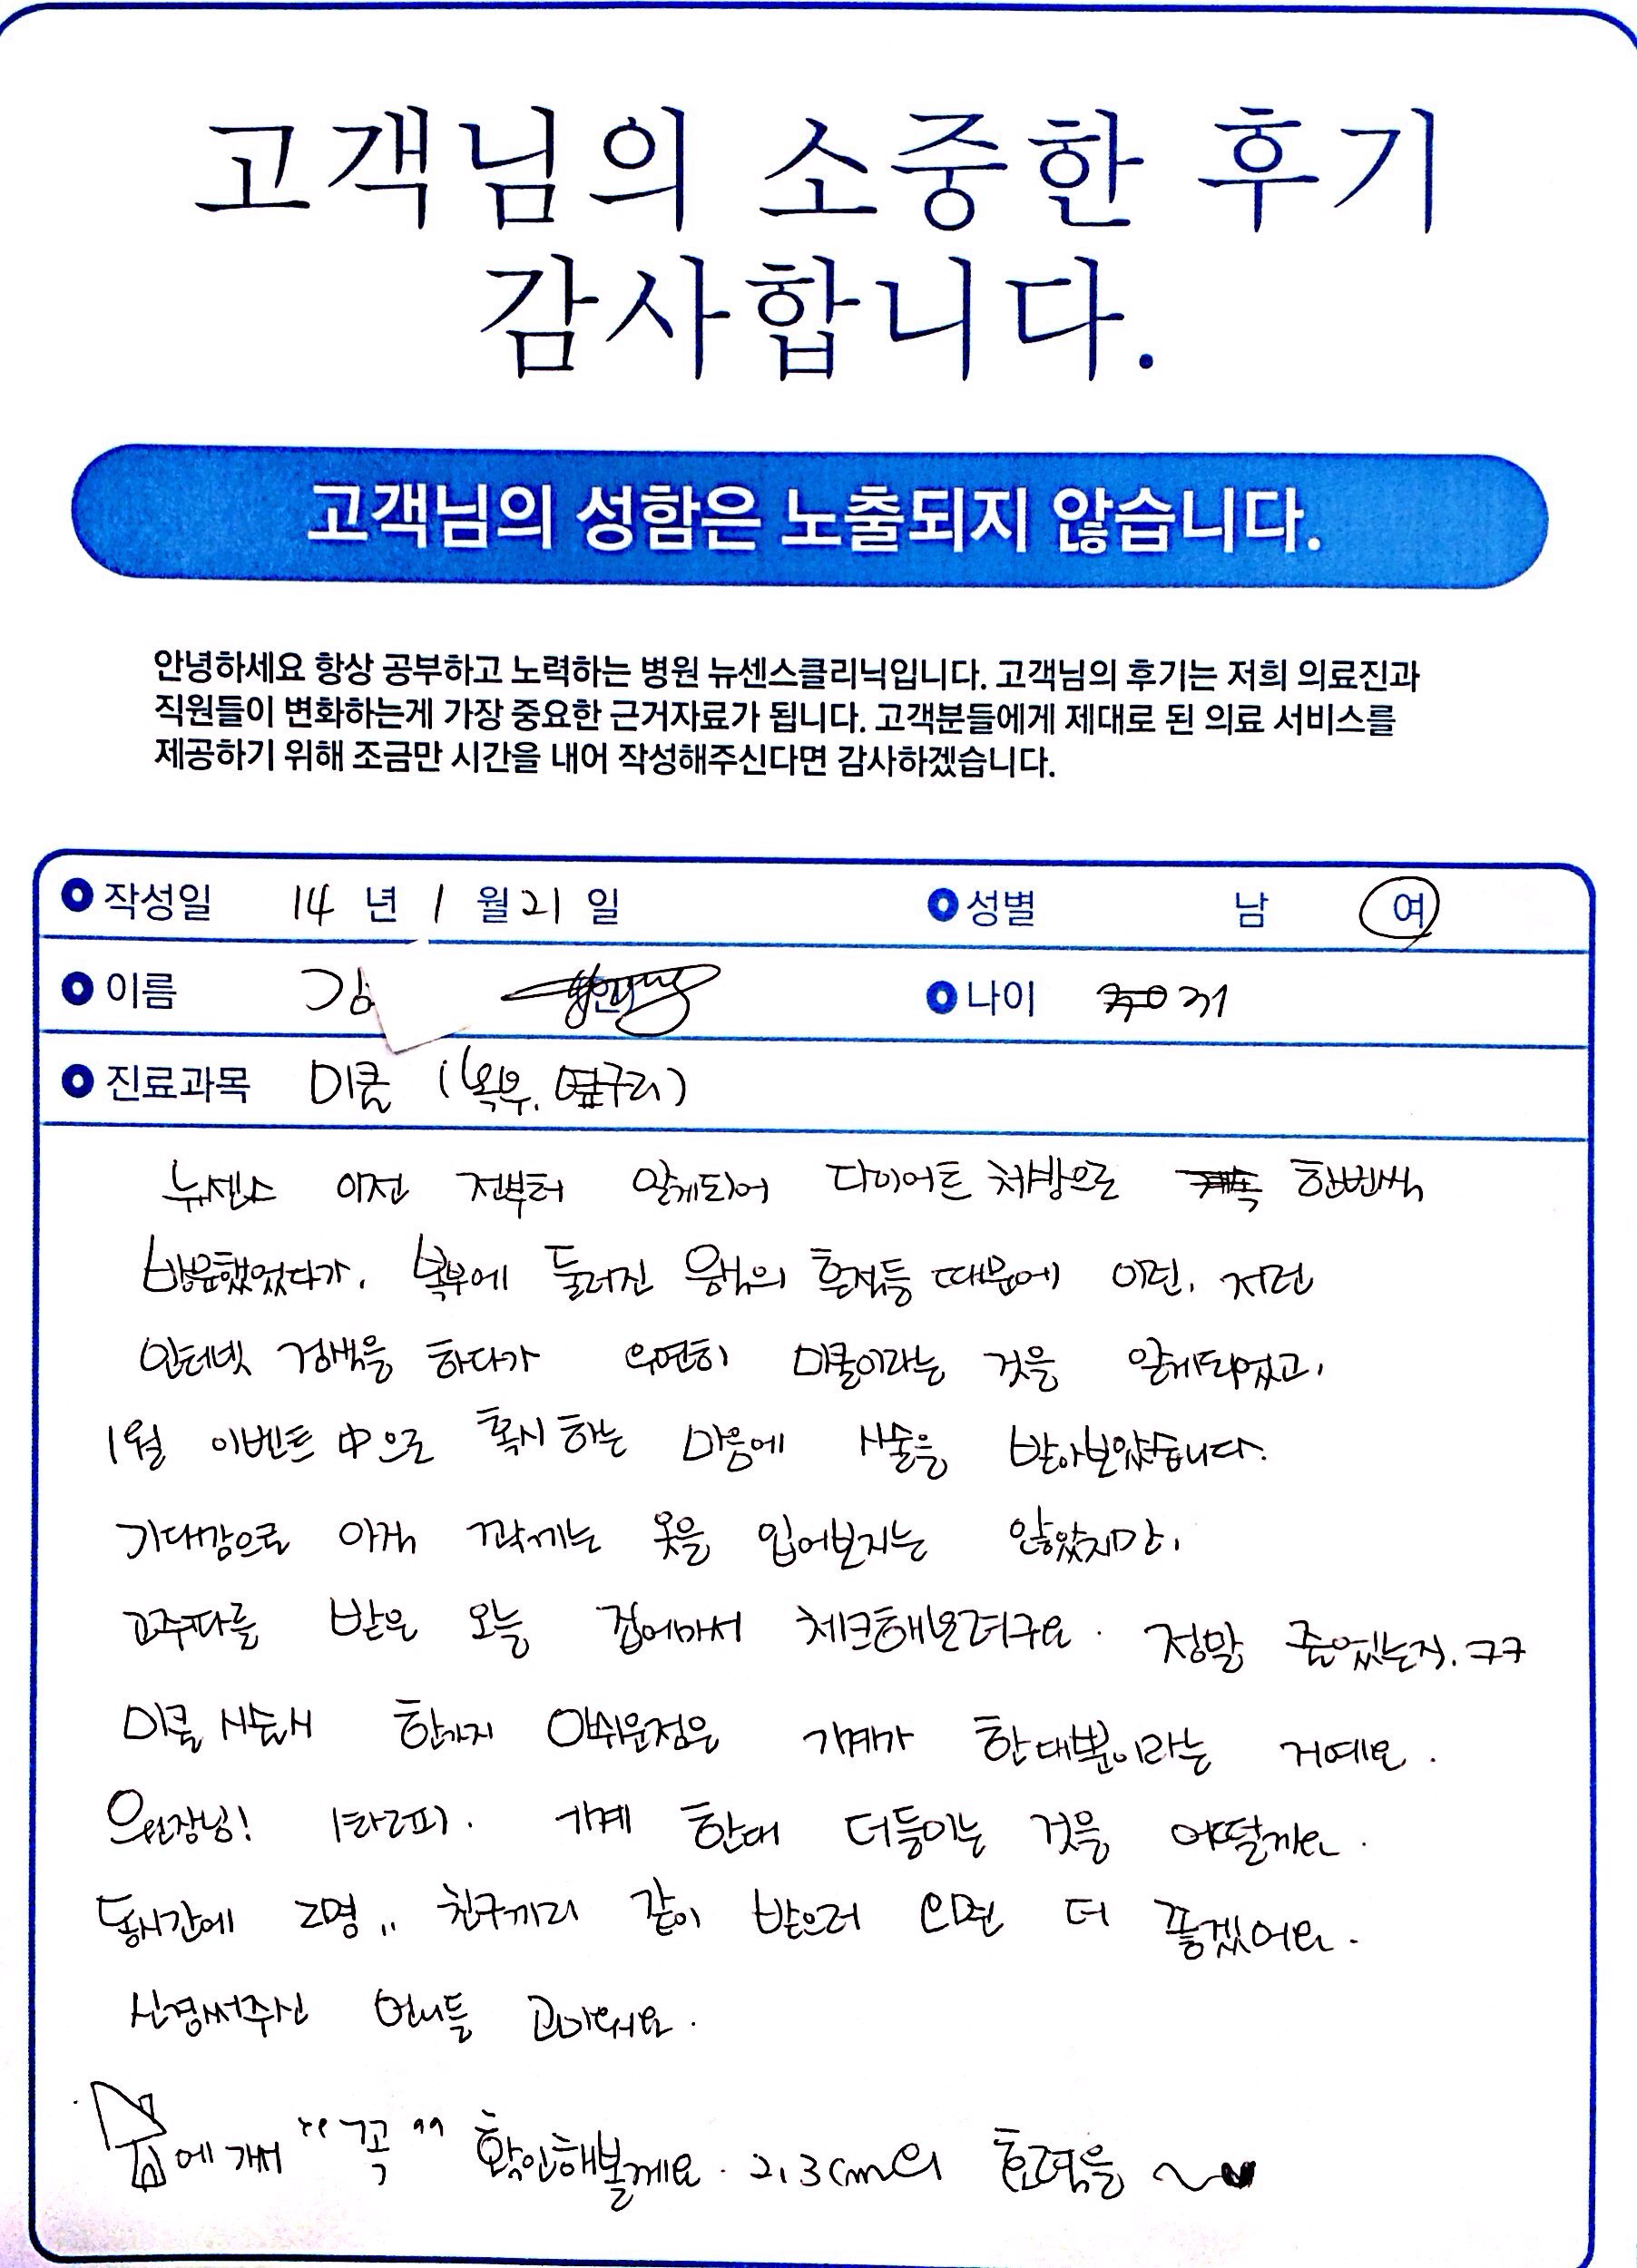 고객님의 소중한 후기
감사합니다.
고객님의 성함은 노출되지 않습니다.
안녕하세요 항상 공부하고 노력하는 병원 뉴센스클리닉입니다. 고객님의 후기는 저희 의료진과
직원들이 변화하는게 가장 중요한 근거자료가 됩니다. 고객분들에게 제대로 된 의료 서비스를
제공하기 위해 조금만 시간을 내어 작성해주신다면 감사하겠습니다.
작성일 14 년 1 월 21 일 성별 남 여
이름 김 나이
진료과목 미쿨 (복부, 옆구리)
뉴센스 이전 전부터 알게되어 다이어트 처방으로 한번씩
방문했었다가, 복부에 둘러진 흔적들 때문에 이런, 저런
인터넷 검색을 하다가 우연히 미쿨이라는 것을 알게되었고,
1월 이벤트 中으로 혹시 하는 마음에 시술을 받아보았습니다.
기대감으로 아직 꽉끼는 옷을 입어보지는 않았지만,
고주파를 받은 오늘 집에마서 체크해보려구요. 정말 줄었는지. ㅋㅋ
미쿨 시술시 한가지 아쉬운점은 기계가 한대뿐이라는 거예요.
원장님! 기계 한대 더들이는 것을 어떨까요.
동시간에 2명,, 친구끼리 같이 받으러 오면 더 좋겠어요.
신경써주신 언니들 고마워요.
에 가서 "꼭" 확인해볼께요. 2,3cm의 효력을 ~♥